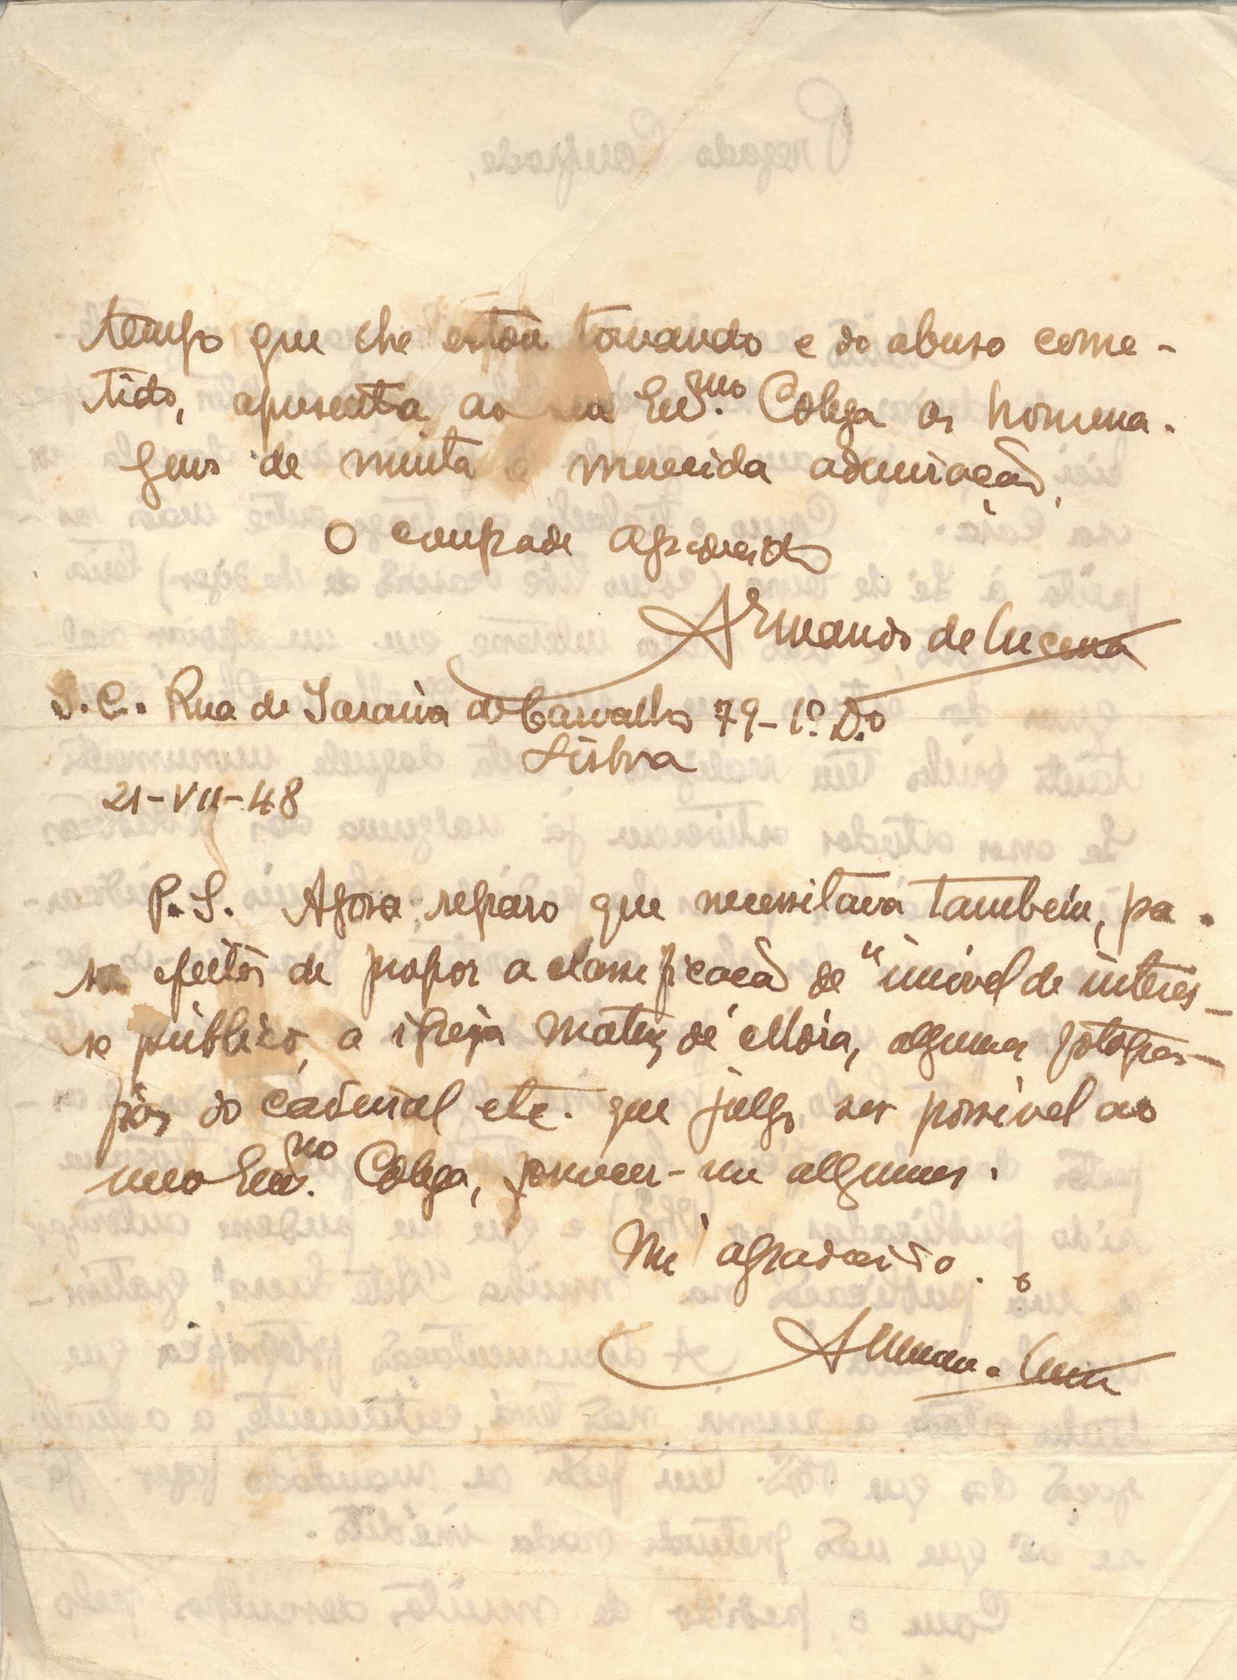 tempo que lhe estou tomando e do abuso come-
tido, apresenta ao seu Exmo. Colega as homena-
gens de muita e merecida admiração,
O confrade agradecido
Armando de Lucena
S.C. Rua de Saraiva de Carvalho 79-1º D.o
Lisboa
21-VII-48
P.S. Agora reparo que necessitava tambem, pa-
ra efeitos de propor a classificação de "imóvel de interes-
se público, a igreja matriz de Moia, algumas fotogra-
fias do cadeiral etc. que julgo ser possivel ao
meu Exmo. Colega, fornecer-me algumas.
Mt agradecido.
Arman. Lucena